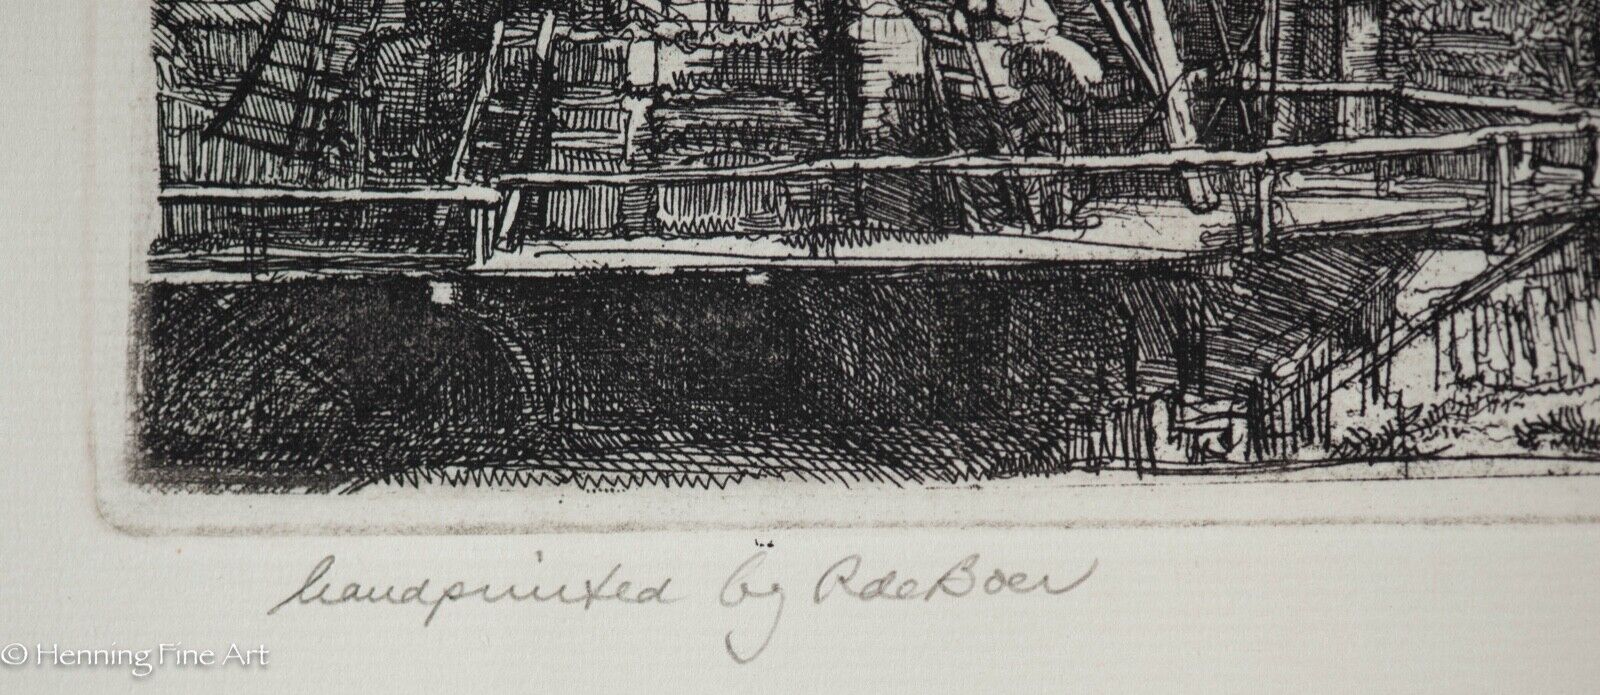 handprinted by R de Boer
© Henning Fine Art